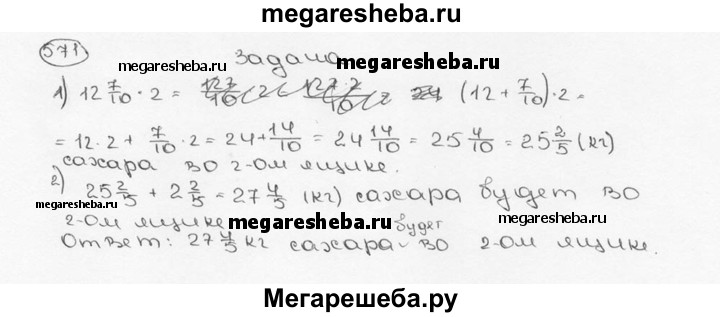 megaresheba.ru
571
Задача
megaresheba.ru
megaresheba.ru
1) 12 7/10 · 2 = (12 + 7/10) · 2 =
= 12 · 2 + 7/10 · 2 = 24 + 14/10 = 24 14/10 = 25 4/10 = 25 2/5 (кг)
сахара во 2-ом ящике.
2) 25 2/5 + 2 2/5 = 27 4/5 (кг) сахара будет во
megaresheba.ru
megaresheba.ru
2-ом ящике
megaresheba.ru
будет
Ответ: 27 4/5 кг сахара во 2-ом ящике.
Мегарешеба.ру